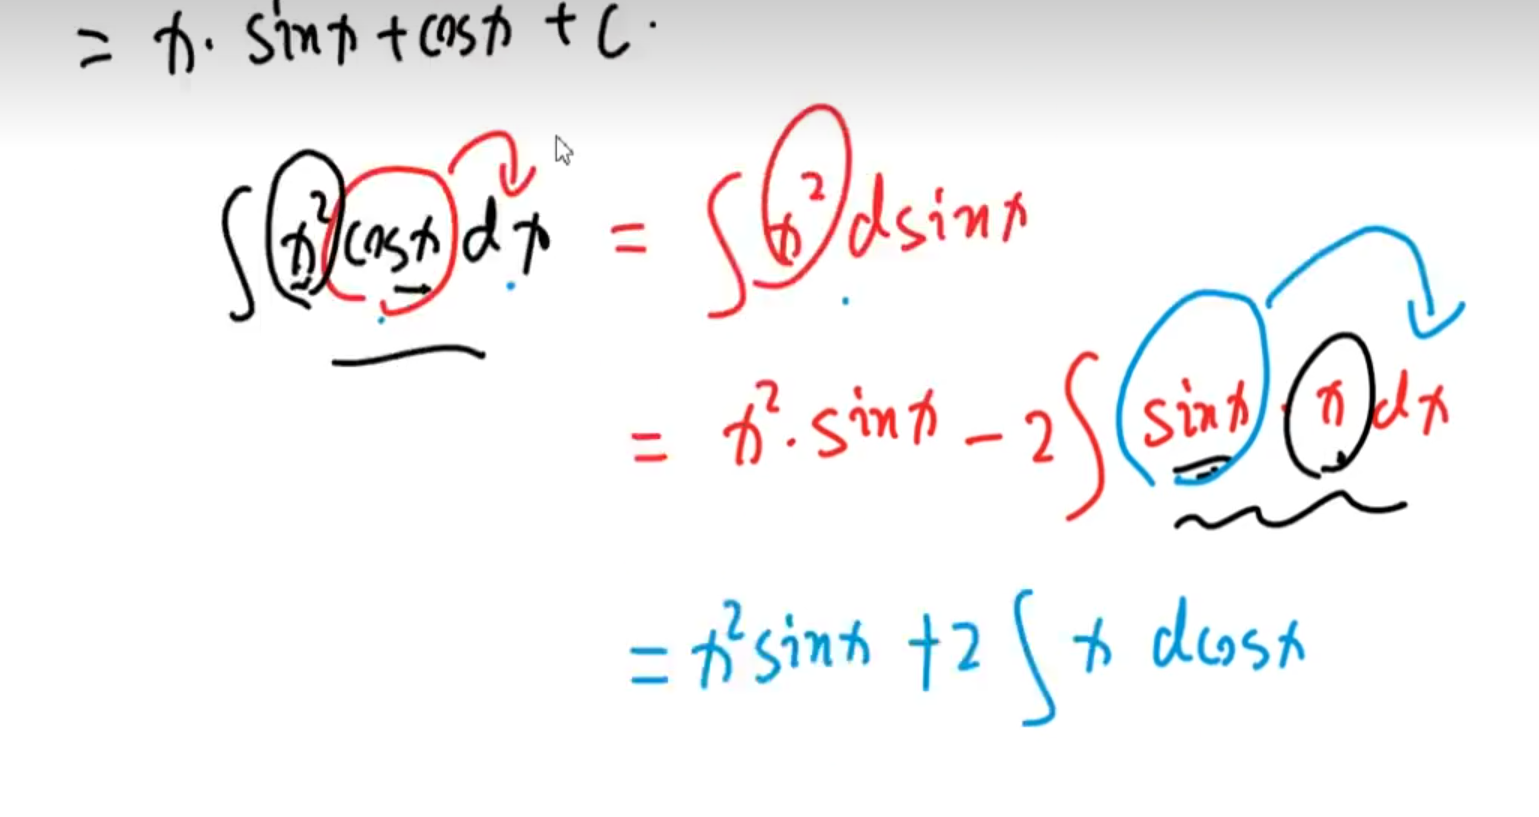 = x · sinx + cosx + C ·
∫ x² cosx dx = ∫ x² dsinx
= x² · sinx − 2 ∫ sinx · x dx
= x² sinx + 2 ∫ x dcosx